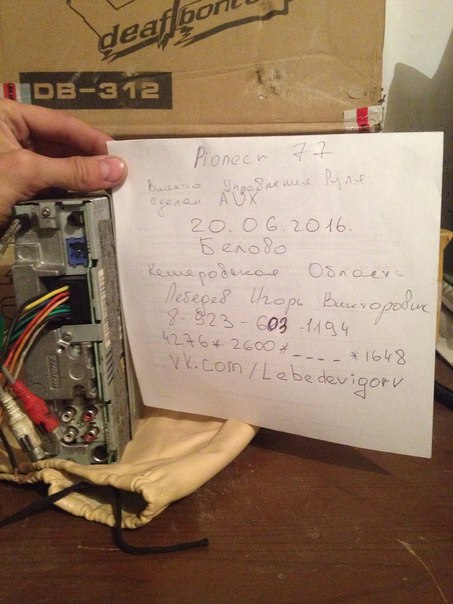 deaf bonce
DB-312
Pioneer 77
Вместо Управления Руля
Сделан AUX
20.06.2016.
Белово
Кемеровская Область
Лебедев Игорь Викторович
8-923-603-1194
4276*2600*----*1648
vk.com/Lebedevigorv